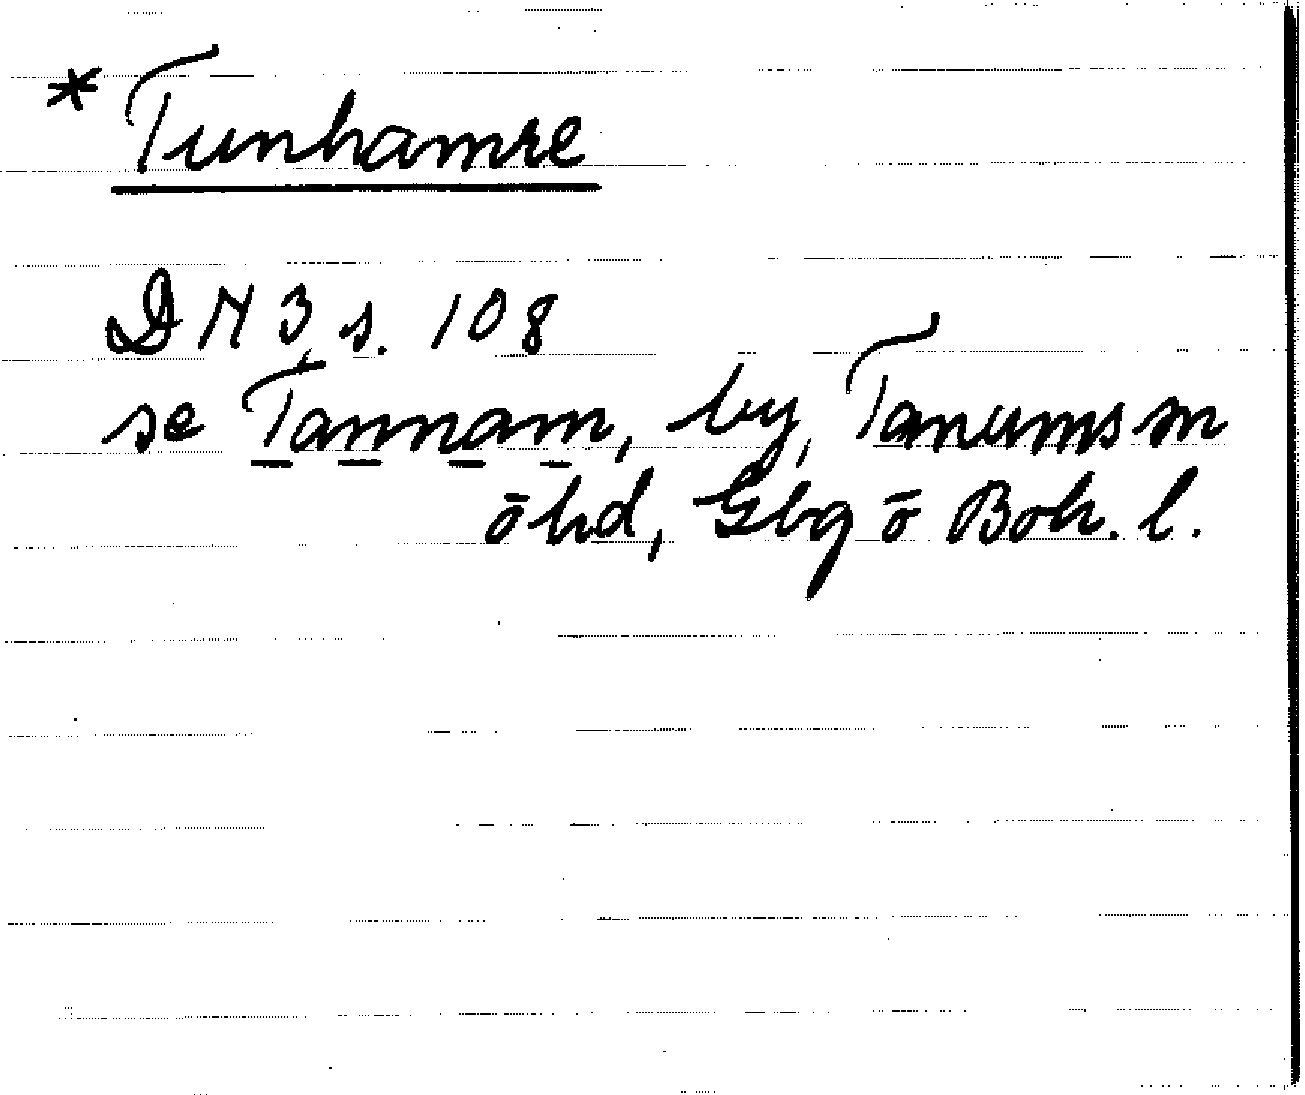 * Tunhamre
DN 3 s. 108
se Tannam, by, Tanums sn
ö hd, Gbg o Boh. l.